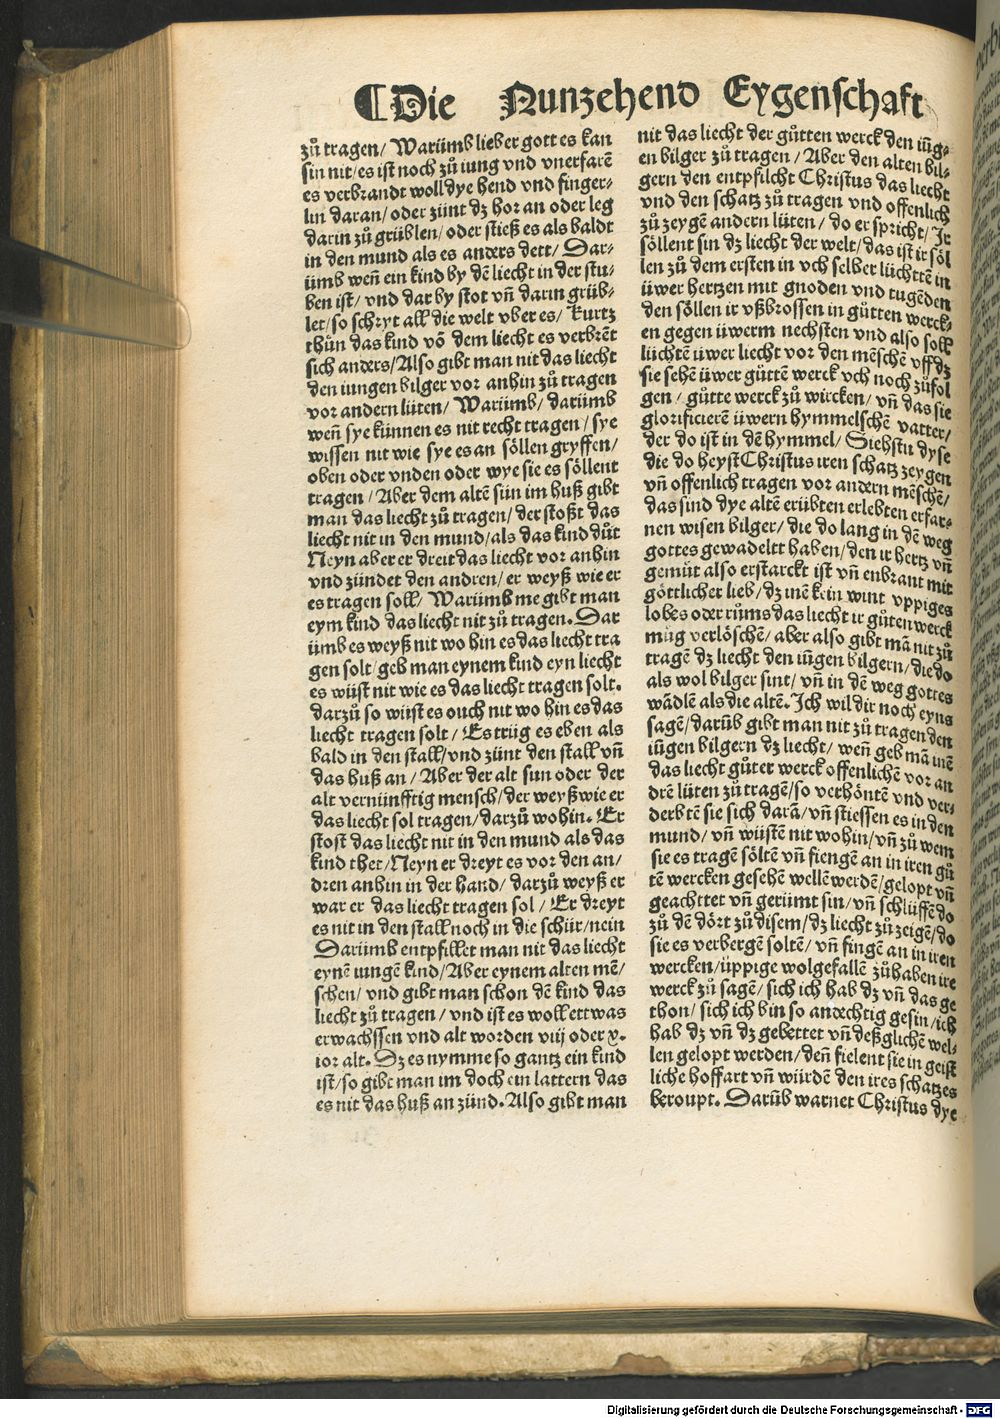 ¶ Die Nunzehend Eygenschaft
zů tragen / Warümb lieber gott es kan
sin nit / es ist noch zů iung vnd vnerfarē
es verbrandt woll dye hend vnd finger⸗
lin daran / oder zünt dz hor an oder leg
darin zů grüblen / oder stieß es als baldt
in den mund als es anders dett / Dar⸗
ümb weñ ein kind by dē liecht in der stu⸗
ben ist / vnd dar by stot vñ darin grüb⸗
let / so schryt all die welt vber es / kurtz
thůn das kind vō dem liecht es verbrēt
sich anders / Also gibt man nit das liecht
den iungen bilger vor anhin zů tragen
vor andern lüten / Warümb / darümb
weñ sye künnen es nit recht tragen / sye
wissen nit wie sye es an söllen gryffen /
oben oder vnden oder wye sie es söllent
tragen / Aber dem altē sün im huß gibt
man das liecht zů tragen / der stoßt das
liecht nit in den mund / als das kind důt
Neyn aber er dreit das liecht vor anhin
vnd zündet den andren / er weyß wie er
es tragen soll / Warümb me gibt man
eym kind das liecht nit zů tragen. Dar
ümb es weyß nit wo hin es das liecht tra
gen solt / geb man eynem kind eyn liecht
es wüst nit wie es das liecht tragen solt.
darzů so wüst es ouch nit wo hin es das
liecht tragen solt / Es trüg es eben als
bald in den stall / vnd zünt den stall vñ
das huß an / Aber der alt sun oder der
alt vernünfftig mensch / der weyß wie er
das liecht sol tragen / darzů wo hin. Er
stost das liecht nit in den mund als das
kind thet / Neyn er dreyt es vor den an /
dren anhin in der hand / darzů weyß er
war er das liecht tragen sol / Er dreyt
es nit in den stall noch in die schür / nein
Darümb entpfillet man nit das liecht
eynē iungē kind / Aber eynem alten mē /
schen / vnd gibt man schon dē kind das
liecht zů tragen / vnd ist es woll ettwas
erwachssen vnd alt worden viij oder x.
ior alt. Dz es nymme so gantz ein kind
ist / so gibt man im doch ein lattern das
es nit das huß an zünd. Also gibt man
nit das liecht der gůtten werck den iūg⸗
en bilger zů tragen / Aber den alten bil⸗
gern den entpfilcht Christus das liecht
vnd den schatz zů tragen vnd offenlich
zů zeygē andern lüten / do er spricht / Ir
söllent sin dz liecht der welt / das ist ir söl
len zů dem ersten in vch selber lüchttē in
üwer hertzen mit gnoden vnd tugēden
den söllen ir vßbrossen in gůtten werck⸗
en gegen üwerm nechsten vnd also soll
lüchtē üwer liecht vor den mēschē vff dz
sie sehē üwer gůttē werck vch noch zůfol
gen / gůtte werck zů wircken / vñ das sie
glorificierē üwern hymmelschē vatter /
der do ist in dē hymmel / Siehstu dyse
die do heyst Christus iren schatz zeygen
vñ offenlich tragen vor andern mēschē /
das sind dye altē erübten erlebten erfar⸗
nen wisen bilger / die do lang in dē weg
gottes gewadeltt haben / den ir hertz vñ
gemüt also erstarckt ist vñ enbrant mit
göttlicher lieb / dz inē kein wint vppiges
lobes oder růms das liecht ir gůten werck
mag verlöschē / aber also gibt mā nit zů
tragē dz liecht den iūgen bilgern / die do
als wol bilger sint / vñ in dē weg gottes
wādlē als die altē. Ich wil dir noch eyns
sagē / darūb gibt man nit zů tragen den
iūgen bilgern dz liecht / weñ geb mā inē
das liecht gůter werck offenlichē vor an
drē lüten zů tragē / so verhöntē vnd ver⸗
derbtē sie sich darā / vñ stiessen es in den
mund / vñ wüstē nit wo hin / vñ zů wem
sie es tragē söltē vñ fiengē an in iren gů
tē wercken gesehē wellē werdē / gelopt vñ
geachttet vñ gerümt sin / vñ schlüffē do
zů dē dört zů disem / dz liecht zů zeigē / do
sie es verbergē soltē / vñ fingē an in iren
wercken / üppige wolgefallē zů haben ire
werck zů sagē / sich ich hab dz vñ das ge
thon / sich ich bin so andechtig gesin / ich
hab dz vñ dz gebettet vñ deßglichē wel⸗
len gelopt werden / deñ fielent sie in geist
liche hoffart vñ würdē den ires schatzes
beroupt. Darūb warnet Christus dye
Digitalisierung gefördert durch die Deutsche Forschungsgemeinschaft - DFG